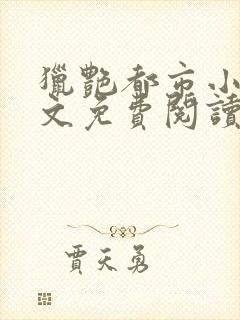 獵艷都市小
文免費閱讀
賈天勇